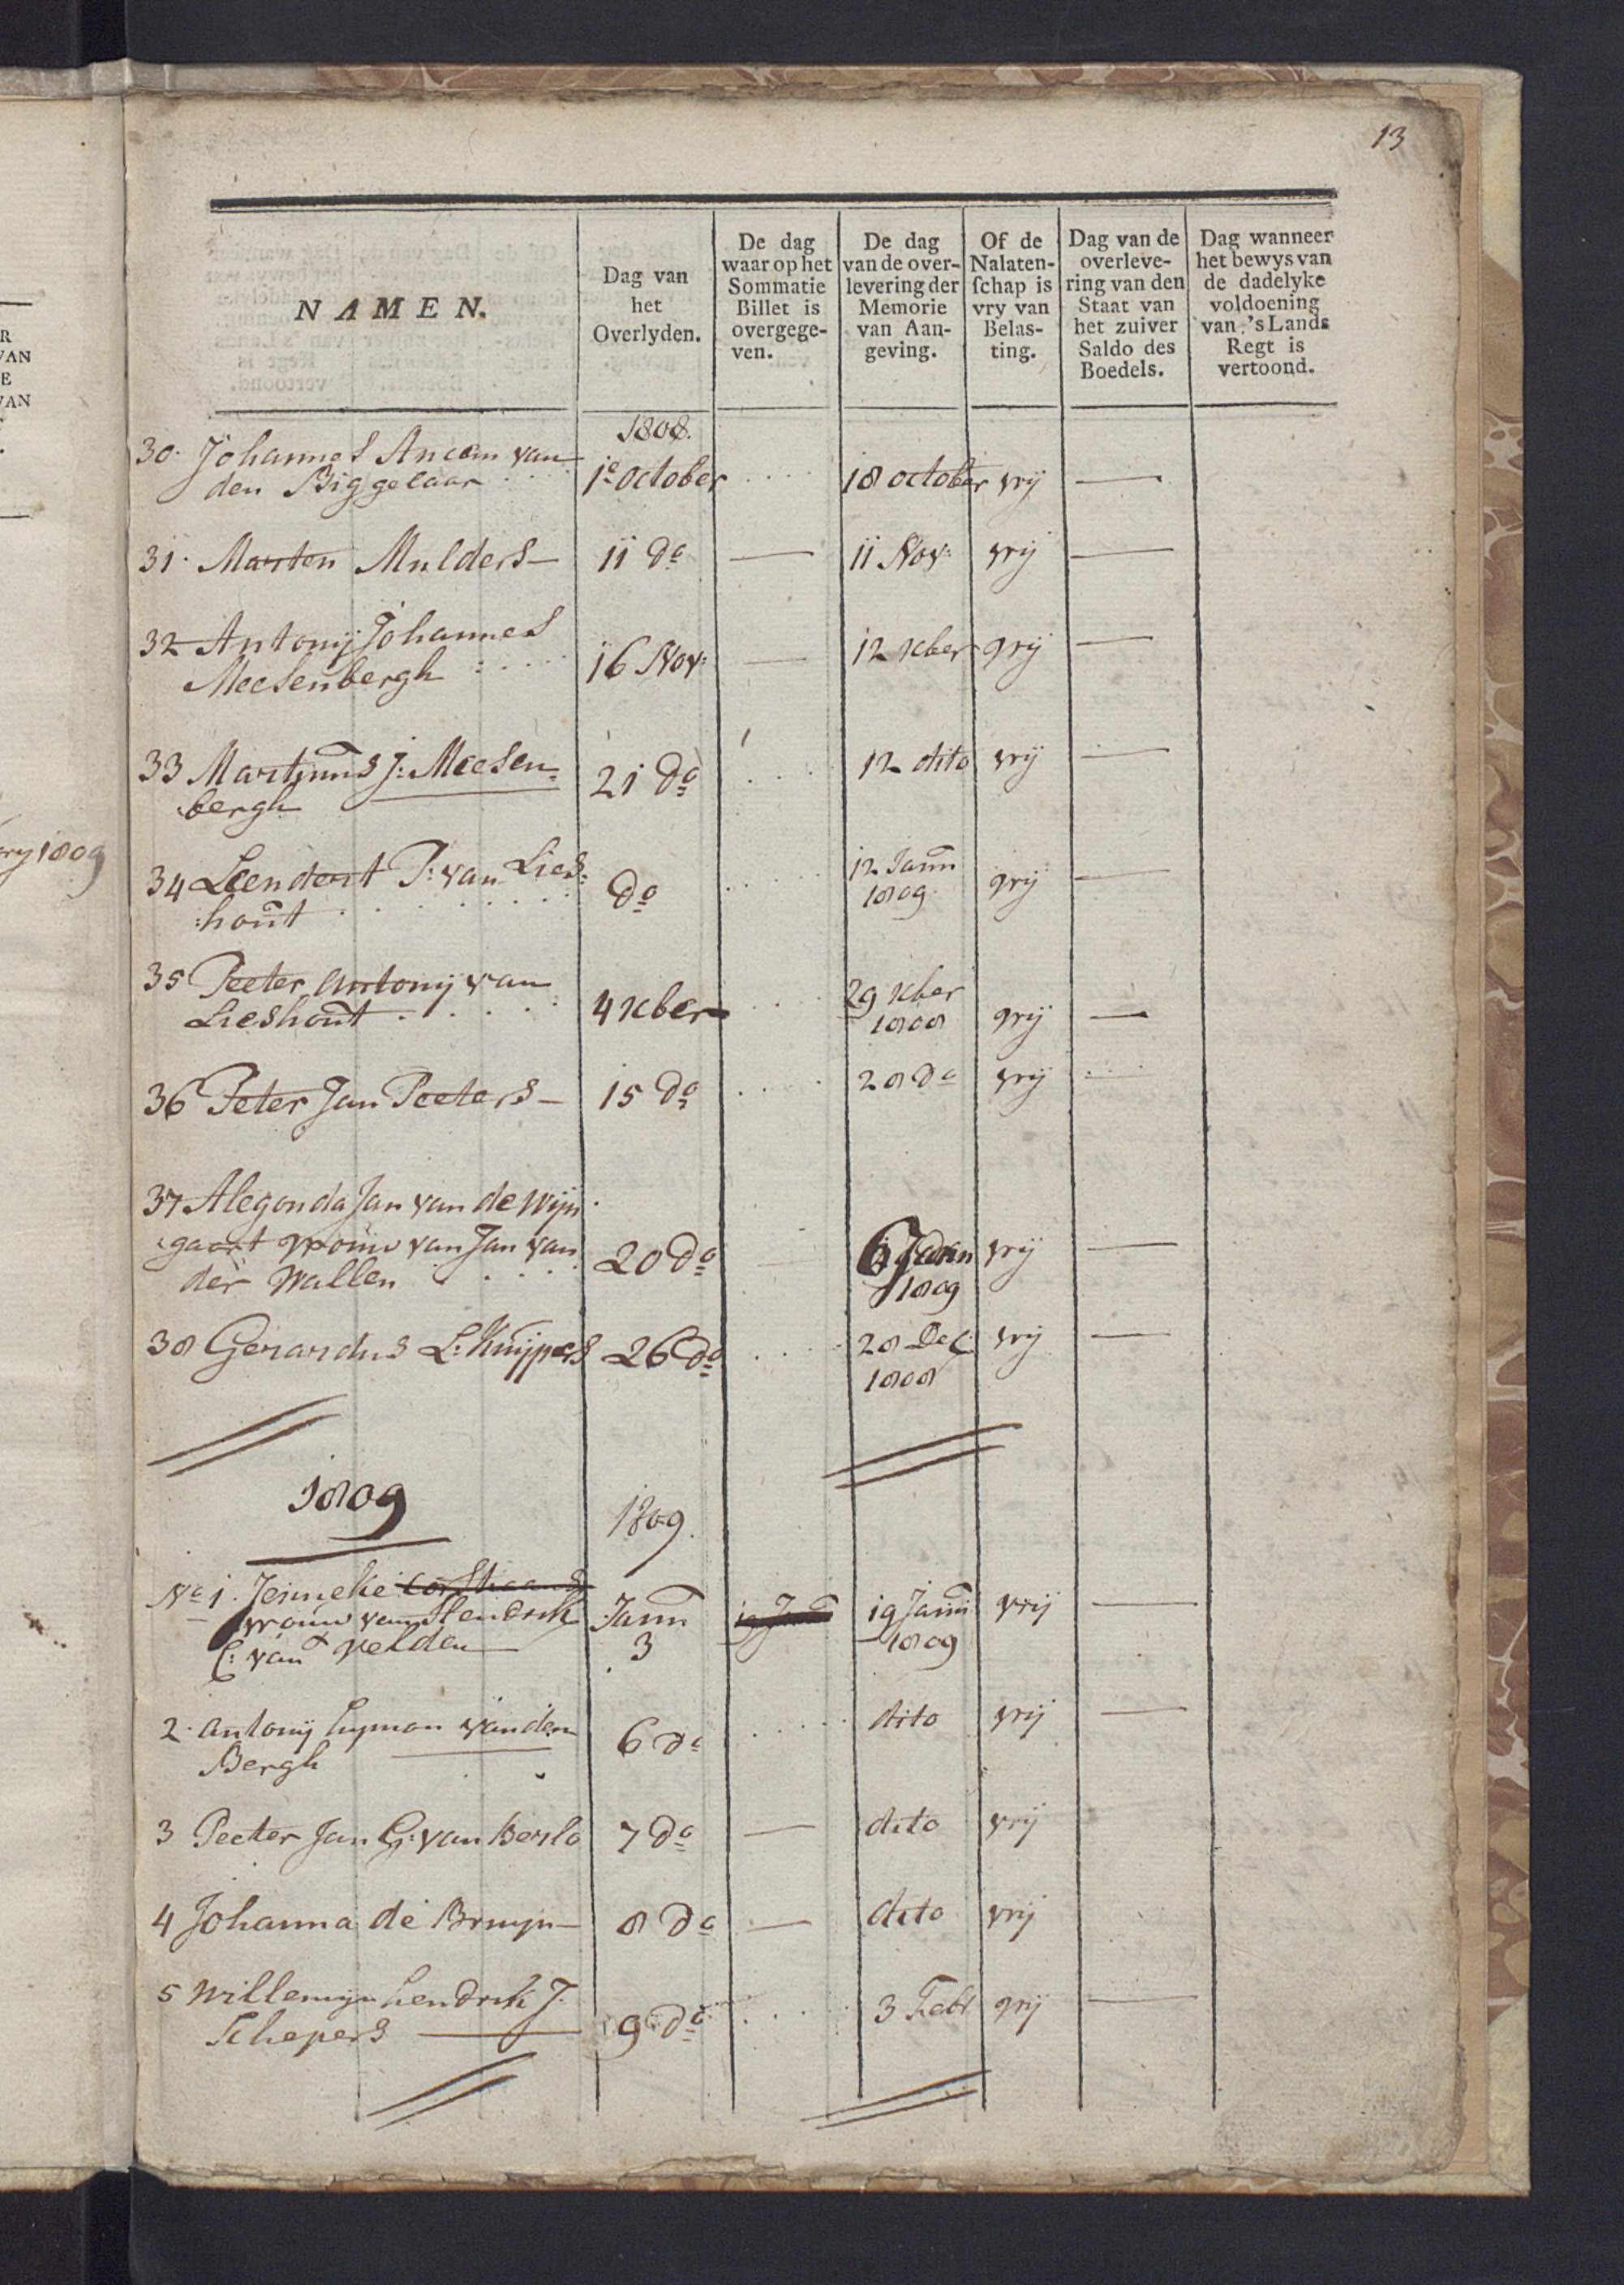 13
NAMEN.
Dag van
het
Overlyden.
De dag
waar op het
Sommatie
Billet is
overgege-
ven.
De dag
van de over-
levering der
Memorie
van Aan-
geving.
Of de
Nalaten-
ſchap is
vry van
Belas-
ting.
Dag van de
overleve-
ring van den
Staat van
het zuiver
Saldo des
Boedels.
Dag wanneer
het bewys van
de dadelyke
voldoening
van 's Lands
Regt is
vertoond.
1808.
30. Johannes Ancem van
den Biggelaar 1e October 18 october vrij
31. Marten Mulders 11 do 11 Nov: vrij
32 Antonij Johannes
Meesenbergh 16 Nov: 12 xber vrij
33 Martinus J: Meesen-
bergh 21 do 12 dito vrij
34 Leendert P: van Lies:
:hout do 12 Jann 1809 vrij
35 Peeter Antonij van
Lieshout 4 xber 29 xber 1808 vrij
36 Peter Jan Peeters 15 do 28 do vrij
37 Alegonda Jan van de Wijn
gaert vrouw van Jan van
der Wallen 20 do 6 Jann 1809 vrij
38 Gerardus L: Kuijpers 26 do 28 Dec 1808 vrij
1809
1809.
No 1. Jenneke
vrouw van Hendrik
C: van Velden Jann 3 19 Jann 1809 vrij
2. Antonij hyman vanden
Bergh 6 do dito vrij
3 Peeter Jan G: van Berlo 7 do dito vrij
4 Johanna de Bruyn 8 do dito vrij
5 Willemyn hendrik J.
Schepers 9 do 3 Febr vrij
ry 1809
R
VAN
E
VAN